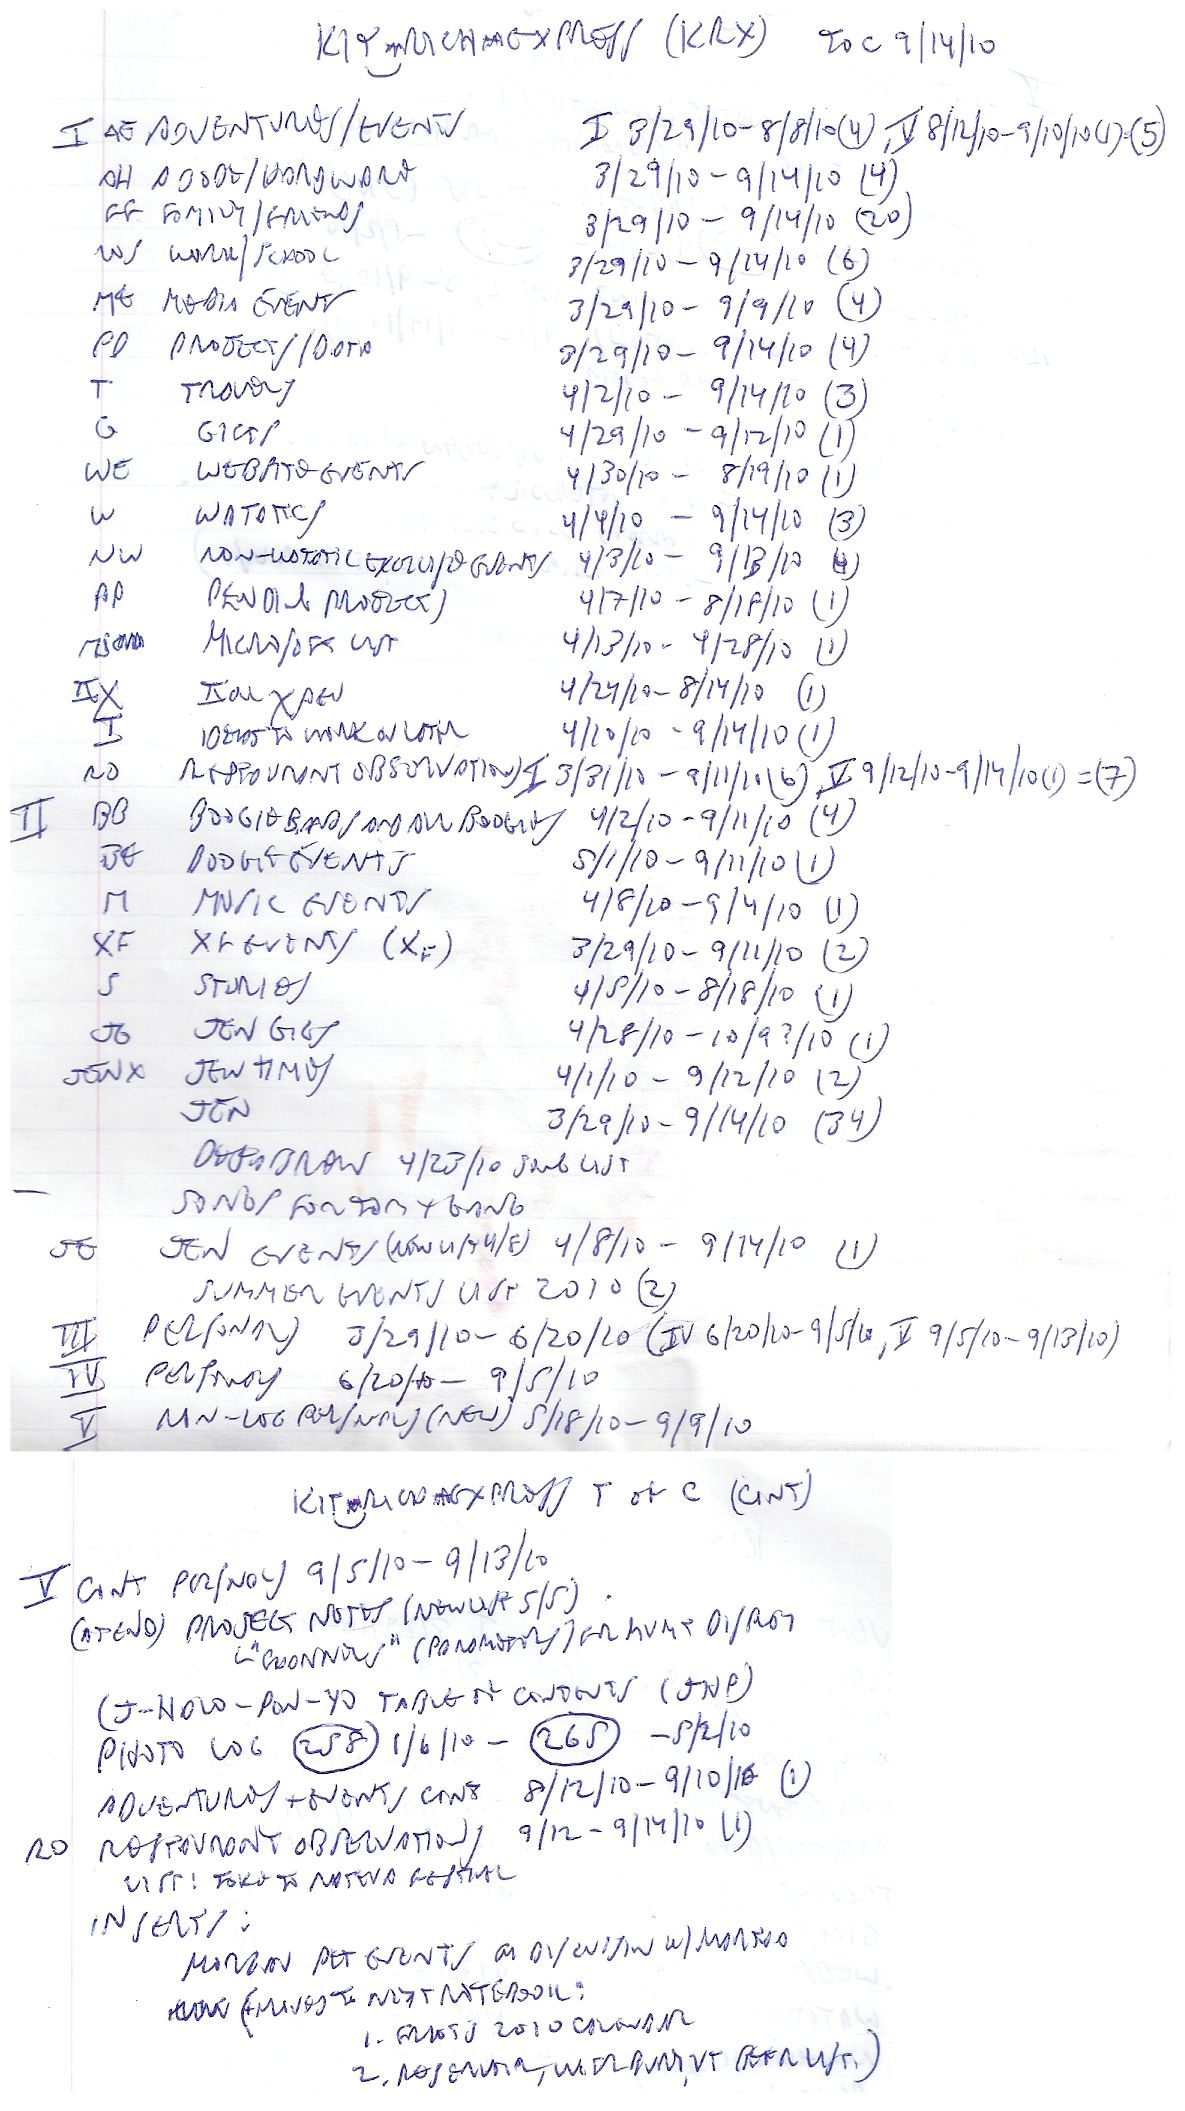 (KRX) TOC 9/14/10
I AE ADVENTURES/EVENTS I 3/29/10-8/8/10(4), V 8/12/10-9/10/10(1)=(5)
AH ABODE/HARDWARE 3/29/10-9/14/10 (4)
FF FAMILY/FRIENDS 3/29/10 - 9/14/10 (20)
WS WORK/SCHOOL 3/29/10-9/14/10 (6)
ME MEDIA EVENTS 3/29/10- 9/9/10 (4)
PD PROJECTS/DATA 3/29/10- 9/14/10 (4)
T TRAVELS 4/2/10- 9/14/10 (3)
G GIFTS 4/29/10 -9/12/10 (1)
WE WEBSITE EVENTS 4/30/10- 8/19/10 (1)
W WATATICS 4/4/10 - 9/14/10 (3)
NW NON-WATATIC EXERCISE EVENTS 4/3/10- 9/13/10 (4)
PP PENDING PROJECTS 4/7/10-8/18/10 (1)
MICROSOFT LIST 4/13/10- 4/28/10 (1)
IIX 4/24/10-8/14/10 (1)
I IDEAS TO WORK ON LATER 4/10/10-9/14/10 (1)
RO RESTAURANT OBSERVATIONS I 3/31/10-9/11/10(6), V 9/12/10-9/14/10(1)=(7)
II BB BOOGIE BANDS AND ALL BOOGIES 4/2/10-9/11/10 (4)
BE BOOGIE EVENTS 5/1/10-9/11/10 (1)
M MUSIC EVENTS 4/8/10-9/4/10 (1)
XF XF EVENTS (XF) 3/29/10-9/11/10 (2)
S STORIES 4/5/10-8/18/10 (1)
JG JEN GIGS 4/28/10-10/9?/10 (1)
JENX JEN TIMES 4/1/10 - 9/12/10 (2)
JEN 3/29/10-9/14/10 (34)
4/23/10 SONG LIST
SONGS FOR TOM + GANG
JE JEN EVENTS (NEW LIST 4/8) 4/8/10 - 9/14/10 (1)
SUMMER EVENTS LIST 2010 (2)
III PERSONALS 3/29/10-6/20/10 (IV 6/20/10-9/5/10, V 9/5/10-9/13/10)
IV PERSONALS 6/20/10- 9/5/10
V NON-LOG PERSONALS (NEW) 5/18/10-9/9/10
T OF C (CONT)
V CONT PERSONALS 9/5/10-9/13/10
(AT END) PROJECT NOTES (NEW LIST 5/5)
(PARAMETERS) FOR
TABLE OF CONTENTS (JHP)
PHOTO LOG 258 1/6/10- 265 -5/2/10
ADVENTURES + EVENTS CONT 8/12/10-9/10/10 (1)
RO RESTAURANT OBSERVATIONS 9/12-9/14/10 (1)
LIST: TAKE TO FESTIVAL
INSERTS:
EVENTS W/
(MOVED TO NEXT NOTEBOOK:
1. 2010 CALENDAR
2. VT BEER LIST.)